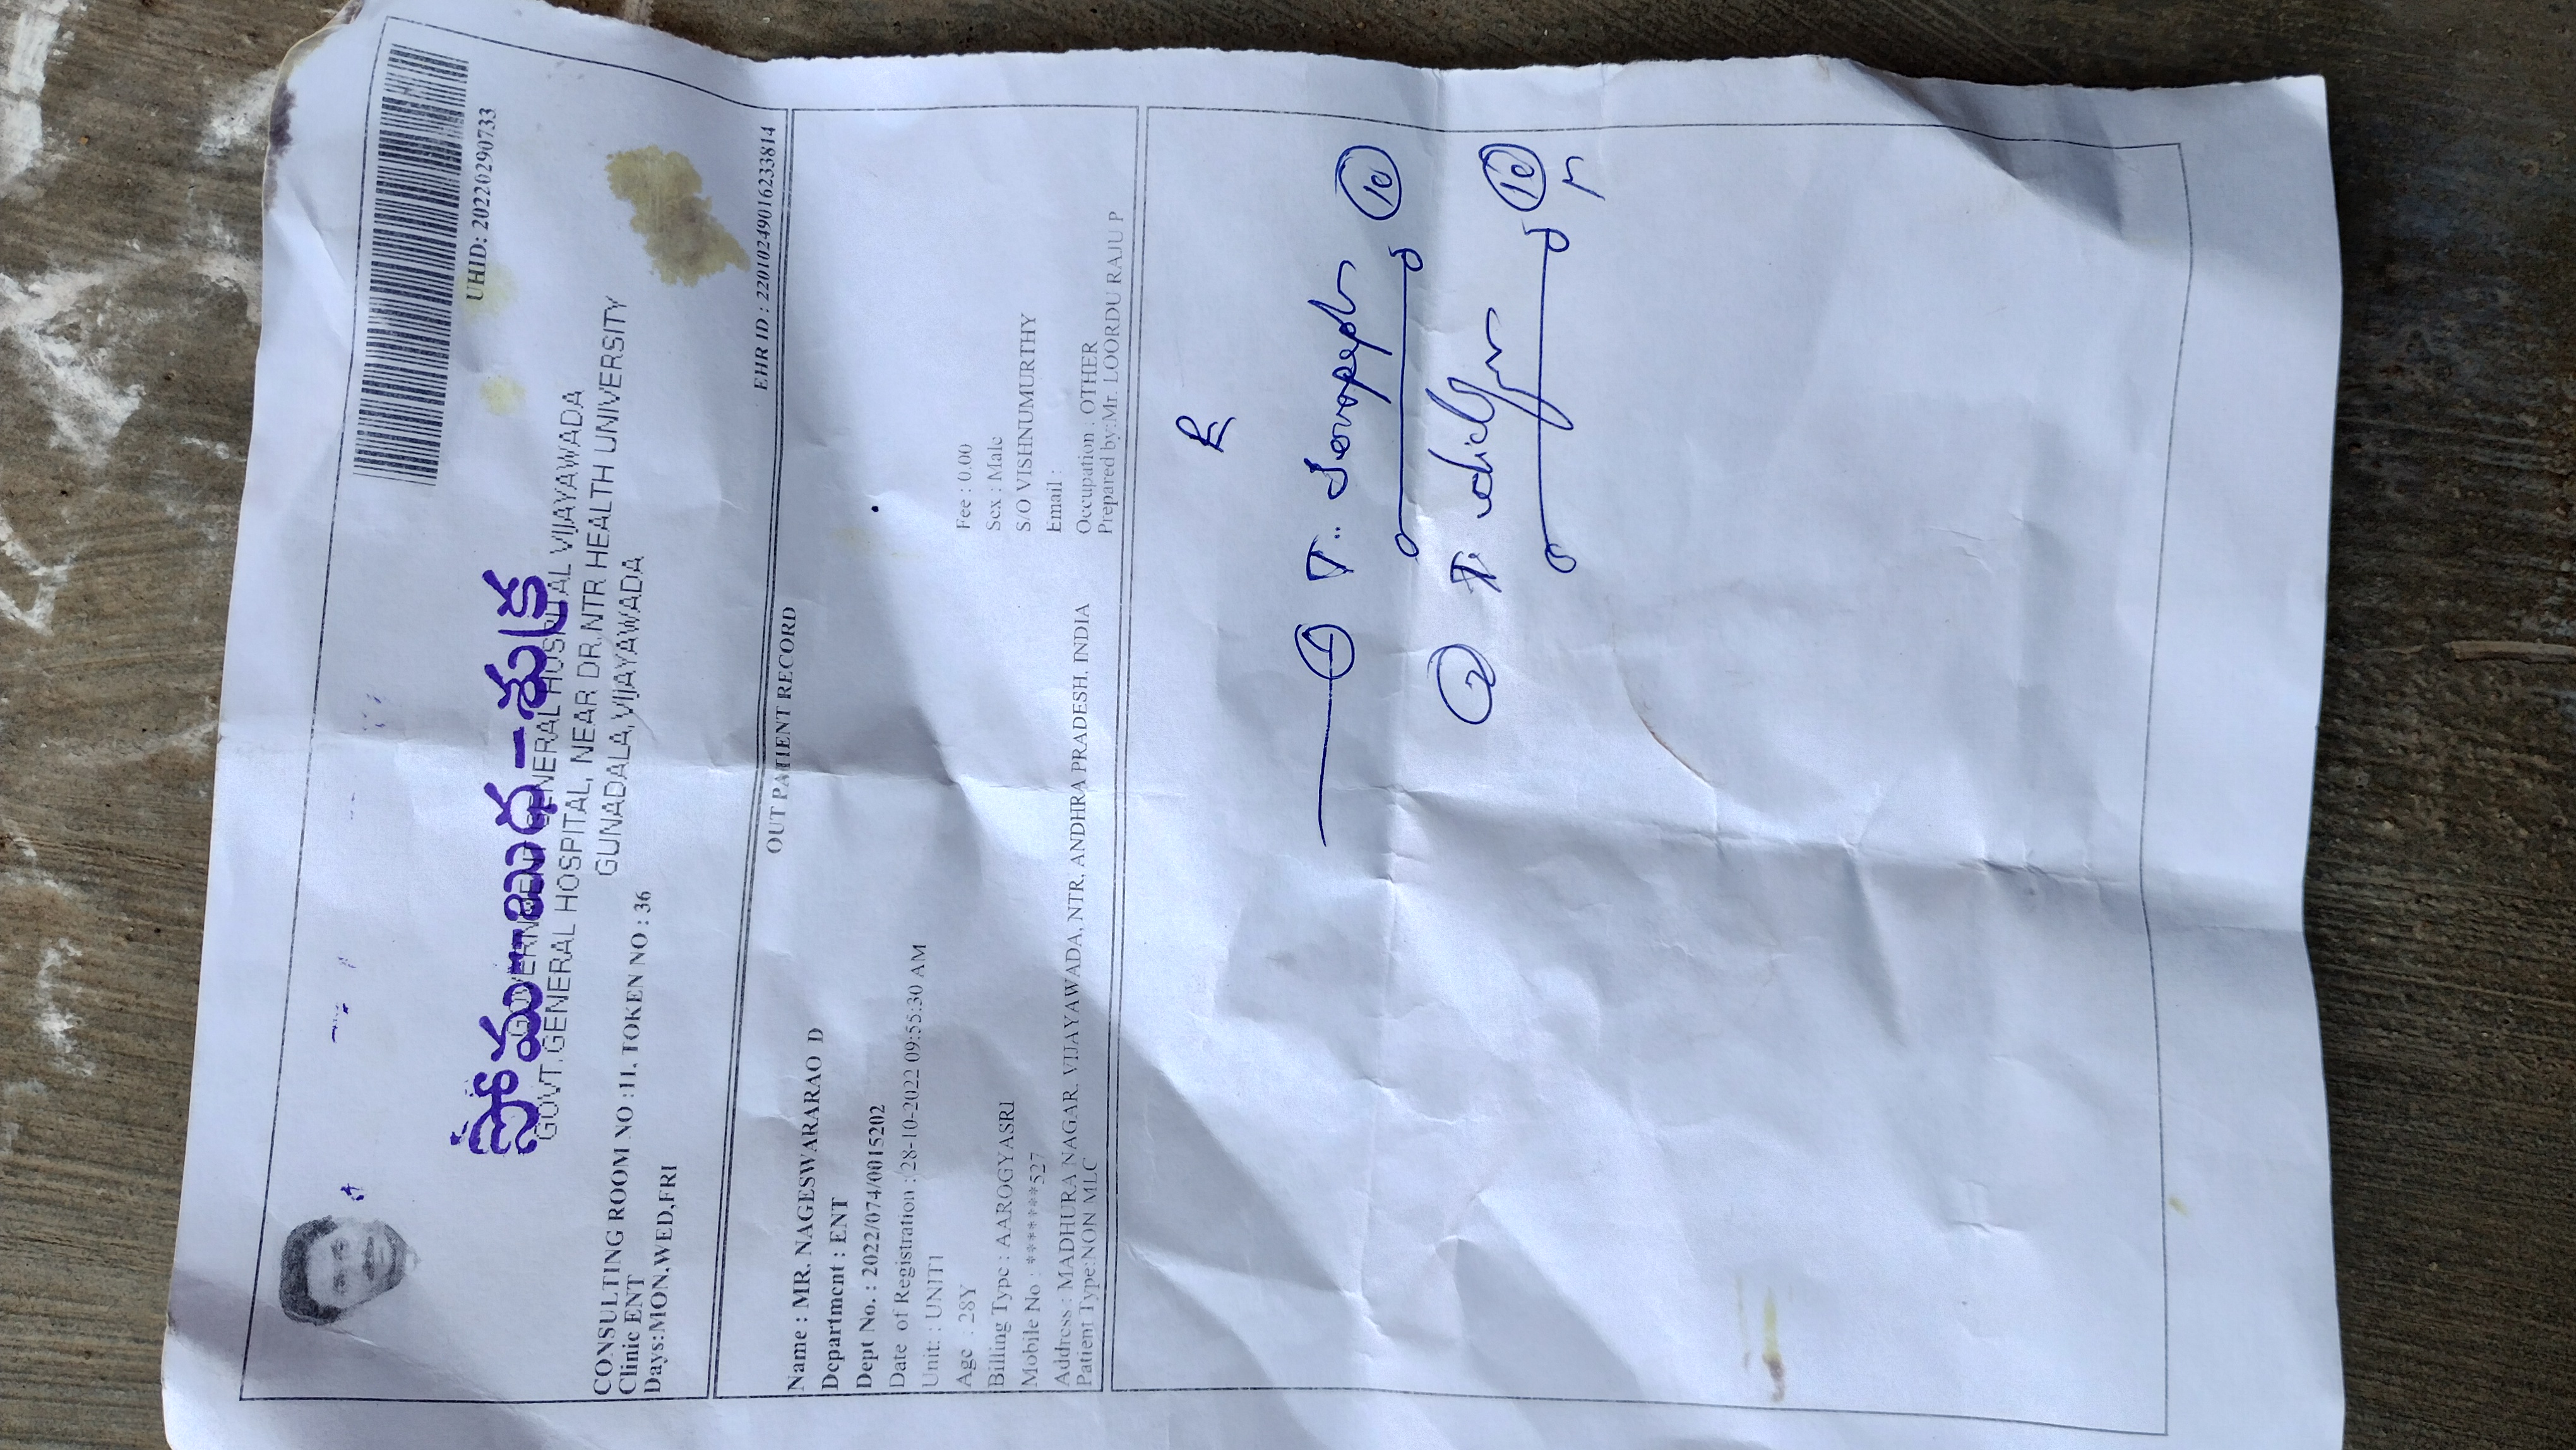 UHID: 20220290733
సోమ-బుధ-శుక్ర
GOVERNMENT GENERAL HOSPITAL VIJAYAWADA
GOVT.GENERAL HOSPITAL, NEAR DR.NTR HEALTH UNIVERSITY
GUNADALA,VIJAYAWADA
CONSULTING ROOM NO :11, TOKEN NO : 36
Clinic ENT
Days:MON,WED,FRI
EHR ID : 22010249016233814
OUT PATIENT RECORD
Name : MR. NAGESWARARAO D
Department : ENT
Dept No. : 2022/074/0015202
Date of Registration : 28-10-2022 09:55:30 AM
Unit: : UNIT1
Age : 28Y
Fee : 0.00
Billing Type : AAROGYASRI
Sex : Male
Mobile No : *******527
S/O VISHNUMURTHY
Email :
Address : MADHURA NAGAR, VIJAYAWADA, NTR, ANDHRA PRADESH, INDIA
Occupation : OTHER
Patient Type:NON MLC
Prepared by:Mr. LOORDU RAJU P
1 T.. 10
2 T. 10